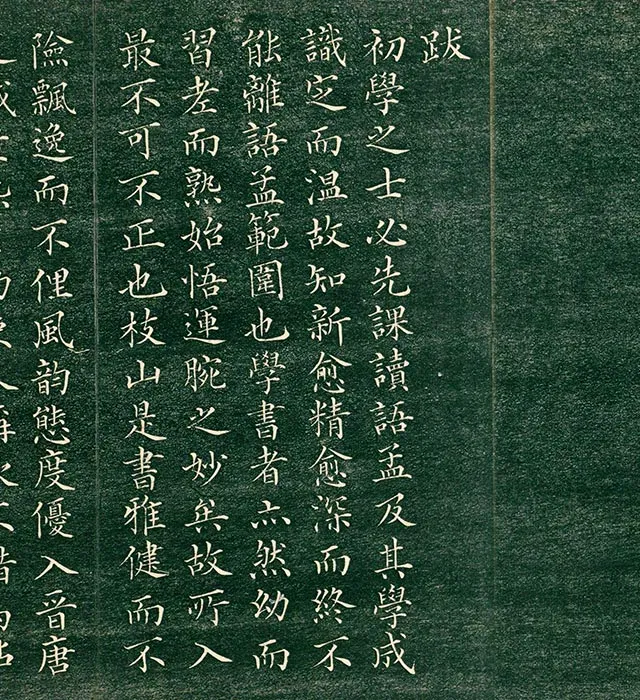 跋
初學之士必先課讀語孟及其學成
識定而温故知新愈精愈深而終不
能離語孟範圍也學書者亦然幼而
習老而熟始悟運腕之妙矣故所入
最不可不正也枝山是書雅健而不
險飄逸而不俚風韵態度優入晋唐